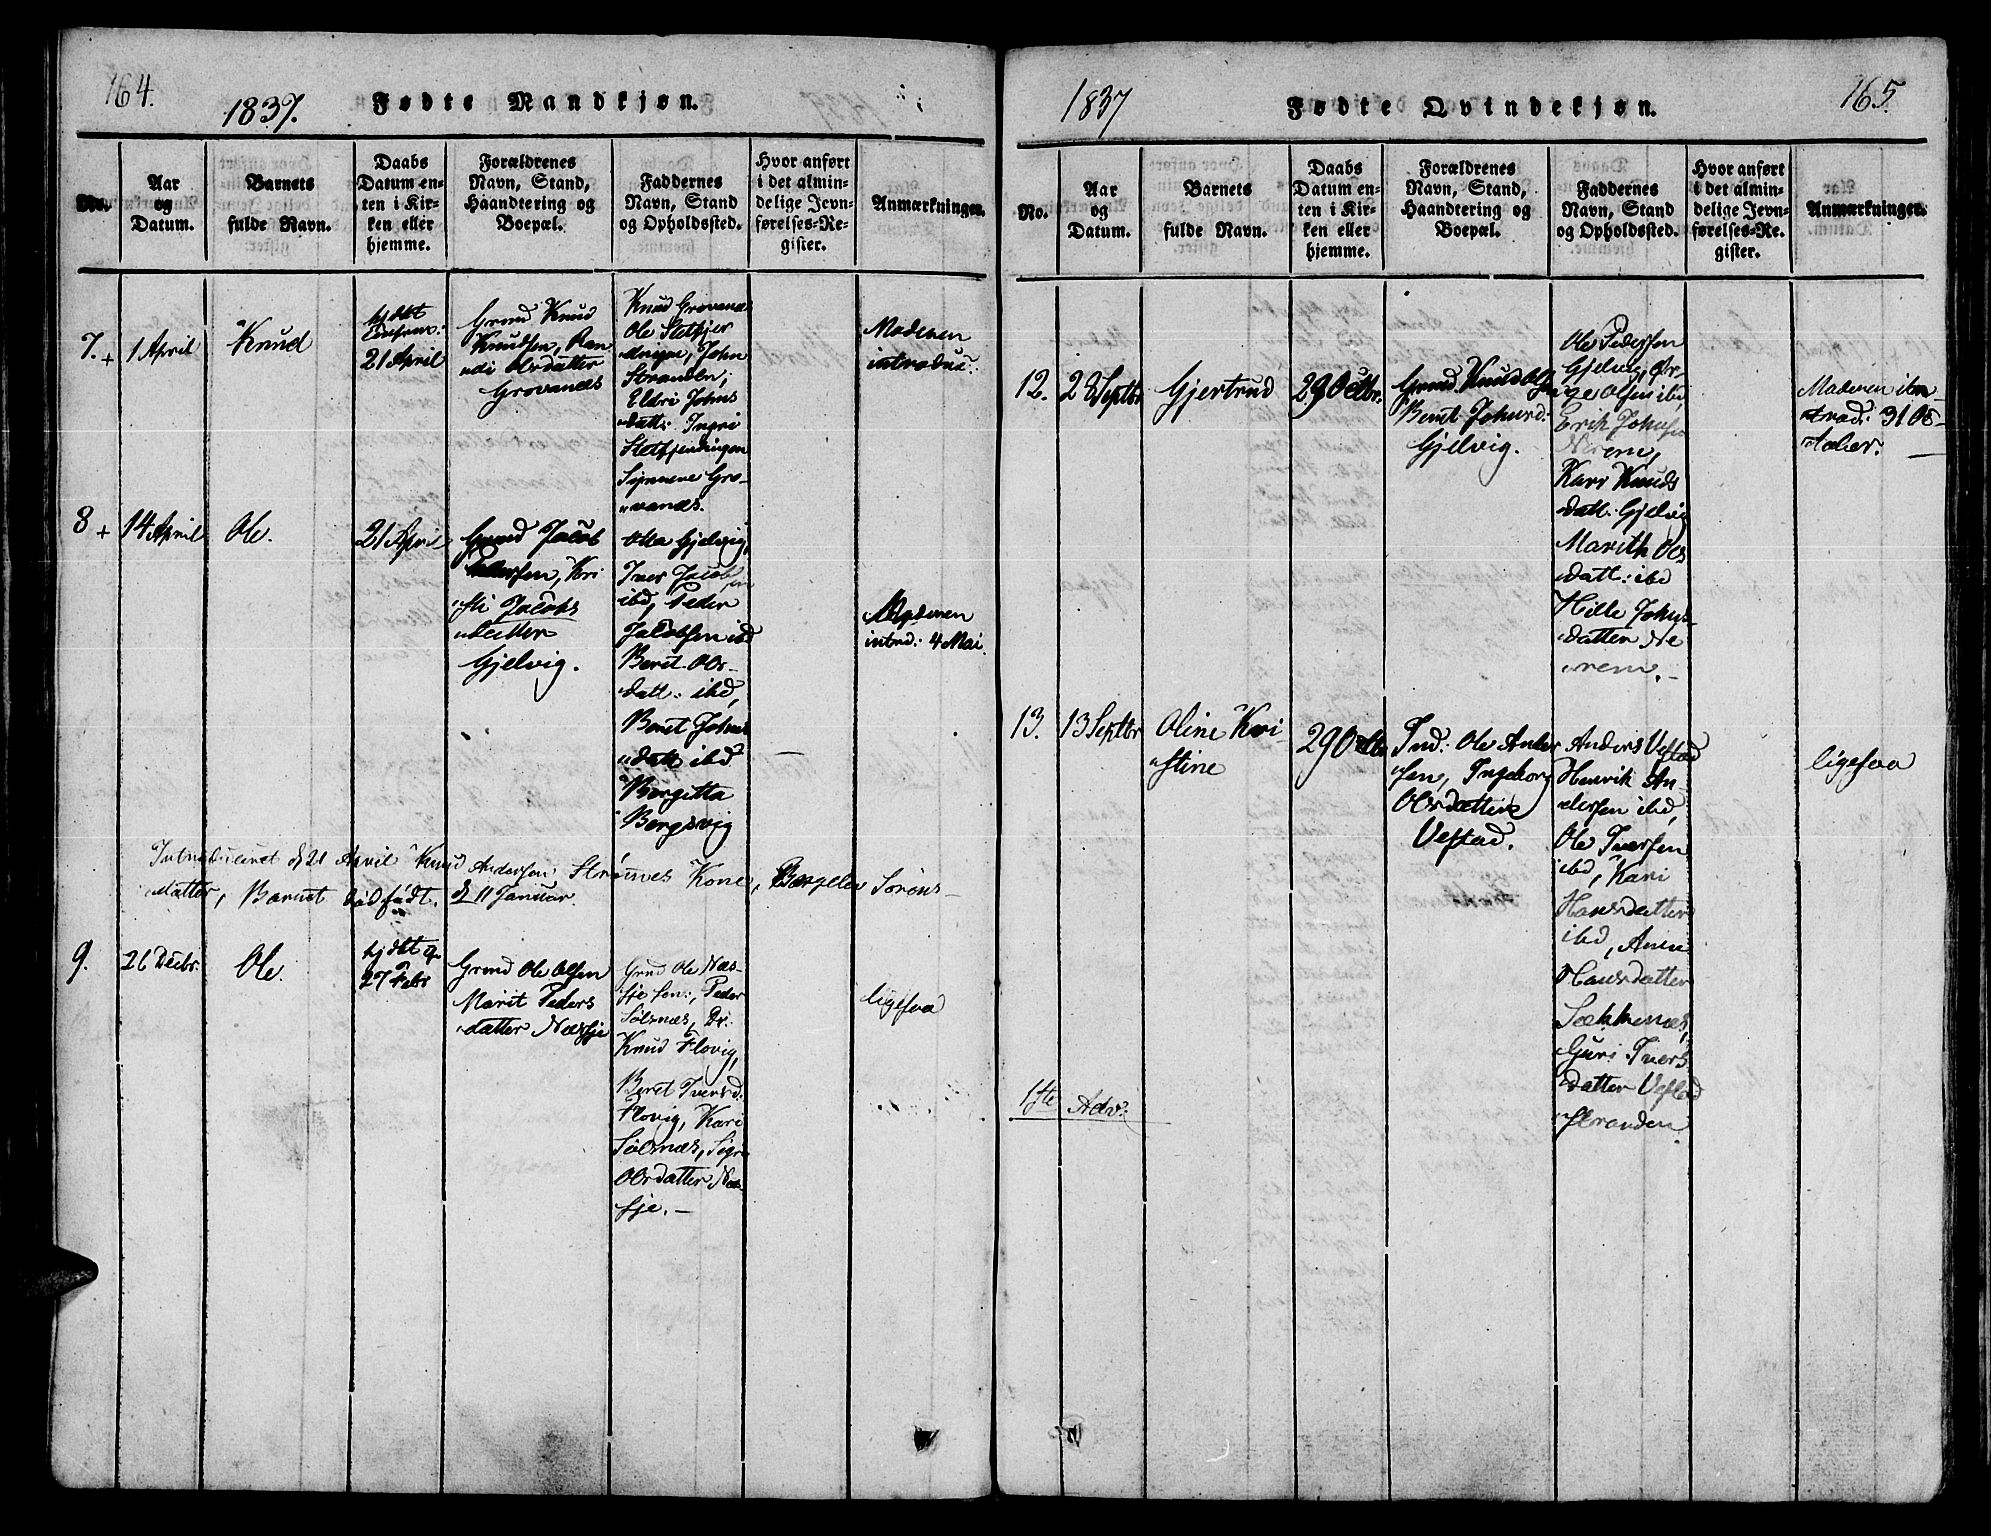 164.
1837. Fødte Mandkjøn.
No.
Aar
og
Datum.
Barnets
fulde Navn.
Daabs
Datum en-
ten i Kir-
ken eller
hjemme.
Forældrenes
Navn, Stand,
Haandtering og
Boepæl.
Faddernes
Navn, Stand
og Opholdssted.
Hvor anført
i det almin-
delige Jevn-
førelses-Re-
gister.
Anmærkninger.
7. +
1 April
Knud
hj dbt
21 April
Grmd Knud
Knudsen, Ran
di Olsdatter
Grovanæs
Knud Grovanæs
Ole Stetfjer
dingen, John
Stranden,
Eldri Johns
datt: Ingri
Stetfjerdingen
Synneve Gro-
vanæs.
Moderen
introduc:
8 +
14 April
Ole.
21 April
Grmd Jacob
Pedersen, Kri
sti Jacobs
datter
Gjelvig.
Otta Gjelvig,
Iver Jacobsen
ibd, Peder
Jacobsen ibd
Beret Ols-
datt: ibd,
Beret Johns
datt ibd
Bergitta
Bergsvig
Moderen
introd: 4 Mai.
Introduceret d 21 April Knud Andersen Kone, Sørens-
datter, Barnet dødfødt. d 11 Januar.
9.
26 Decbr.
Ole.
hj dbt
27 Febr
Grmd Ole Olsen
Marit Peders
datter Næsje
Grmd Ole Næs-
je sen:, Peder
Sølsnæs, Dr.
Knud Flovig,
Beret Iversd.
Flovig, Kari
Sølsnæs, Sigri
Olsdatter Næ-
sje. —
ligesaa
1837 Fødte Qvindekjøn. 165.
No.
Aar
og
Datum.
Barnets
fulde Navn.
Daabs
Datum en-
ten i Kir-
ken eller
hjemme.
Forældrenes
Navn, Stand,
Haandtering og
Boepæl.
Faddernes
Navn, Stand
og Opholdssted.
Hvor anført
i det almin-
delige Jevn-
førelses-Re-
gister.
Anmærkninger.
12.
28 Septbr
Gjertrud
29 Octbr.
Grmd Knud Ols
Beret Johnsd:
Gjelvig.
Ole Pedersen
Gjelvig, Ør-
ge Olsen ibd,
Erik Johnsen
Nerem,
Kari Knuds
datt: Gjelvig
Marith Ols
datt: ibd
Hille Johns
datter Ne
rem. —
Moderen in-
trod: 31 Oc-
tober. —
13.
13 Septbr
Oline Kri
stine
29 Octbr
Ind: Ole Ander
sen, Ingeborg
Olsdatter
Vestad.
Anders Vestad
Henrik An-
dersen ibd,
Ole Iversen
ibd, Kari
Hansdatter
ibd, Anne
Hansdatter
Sækkenæs,
Guri Ivers
datter Vestad
stranden.
ligesaa
1ste Adv: